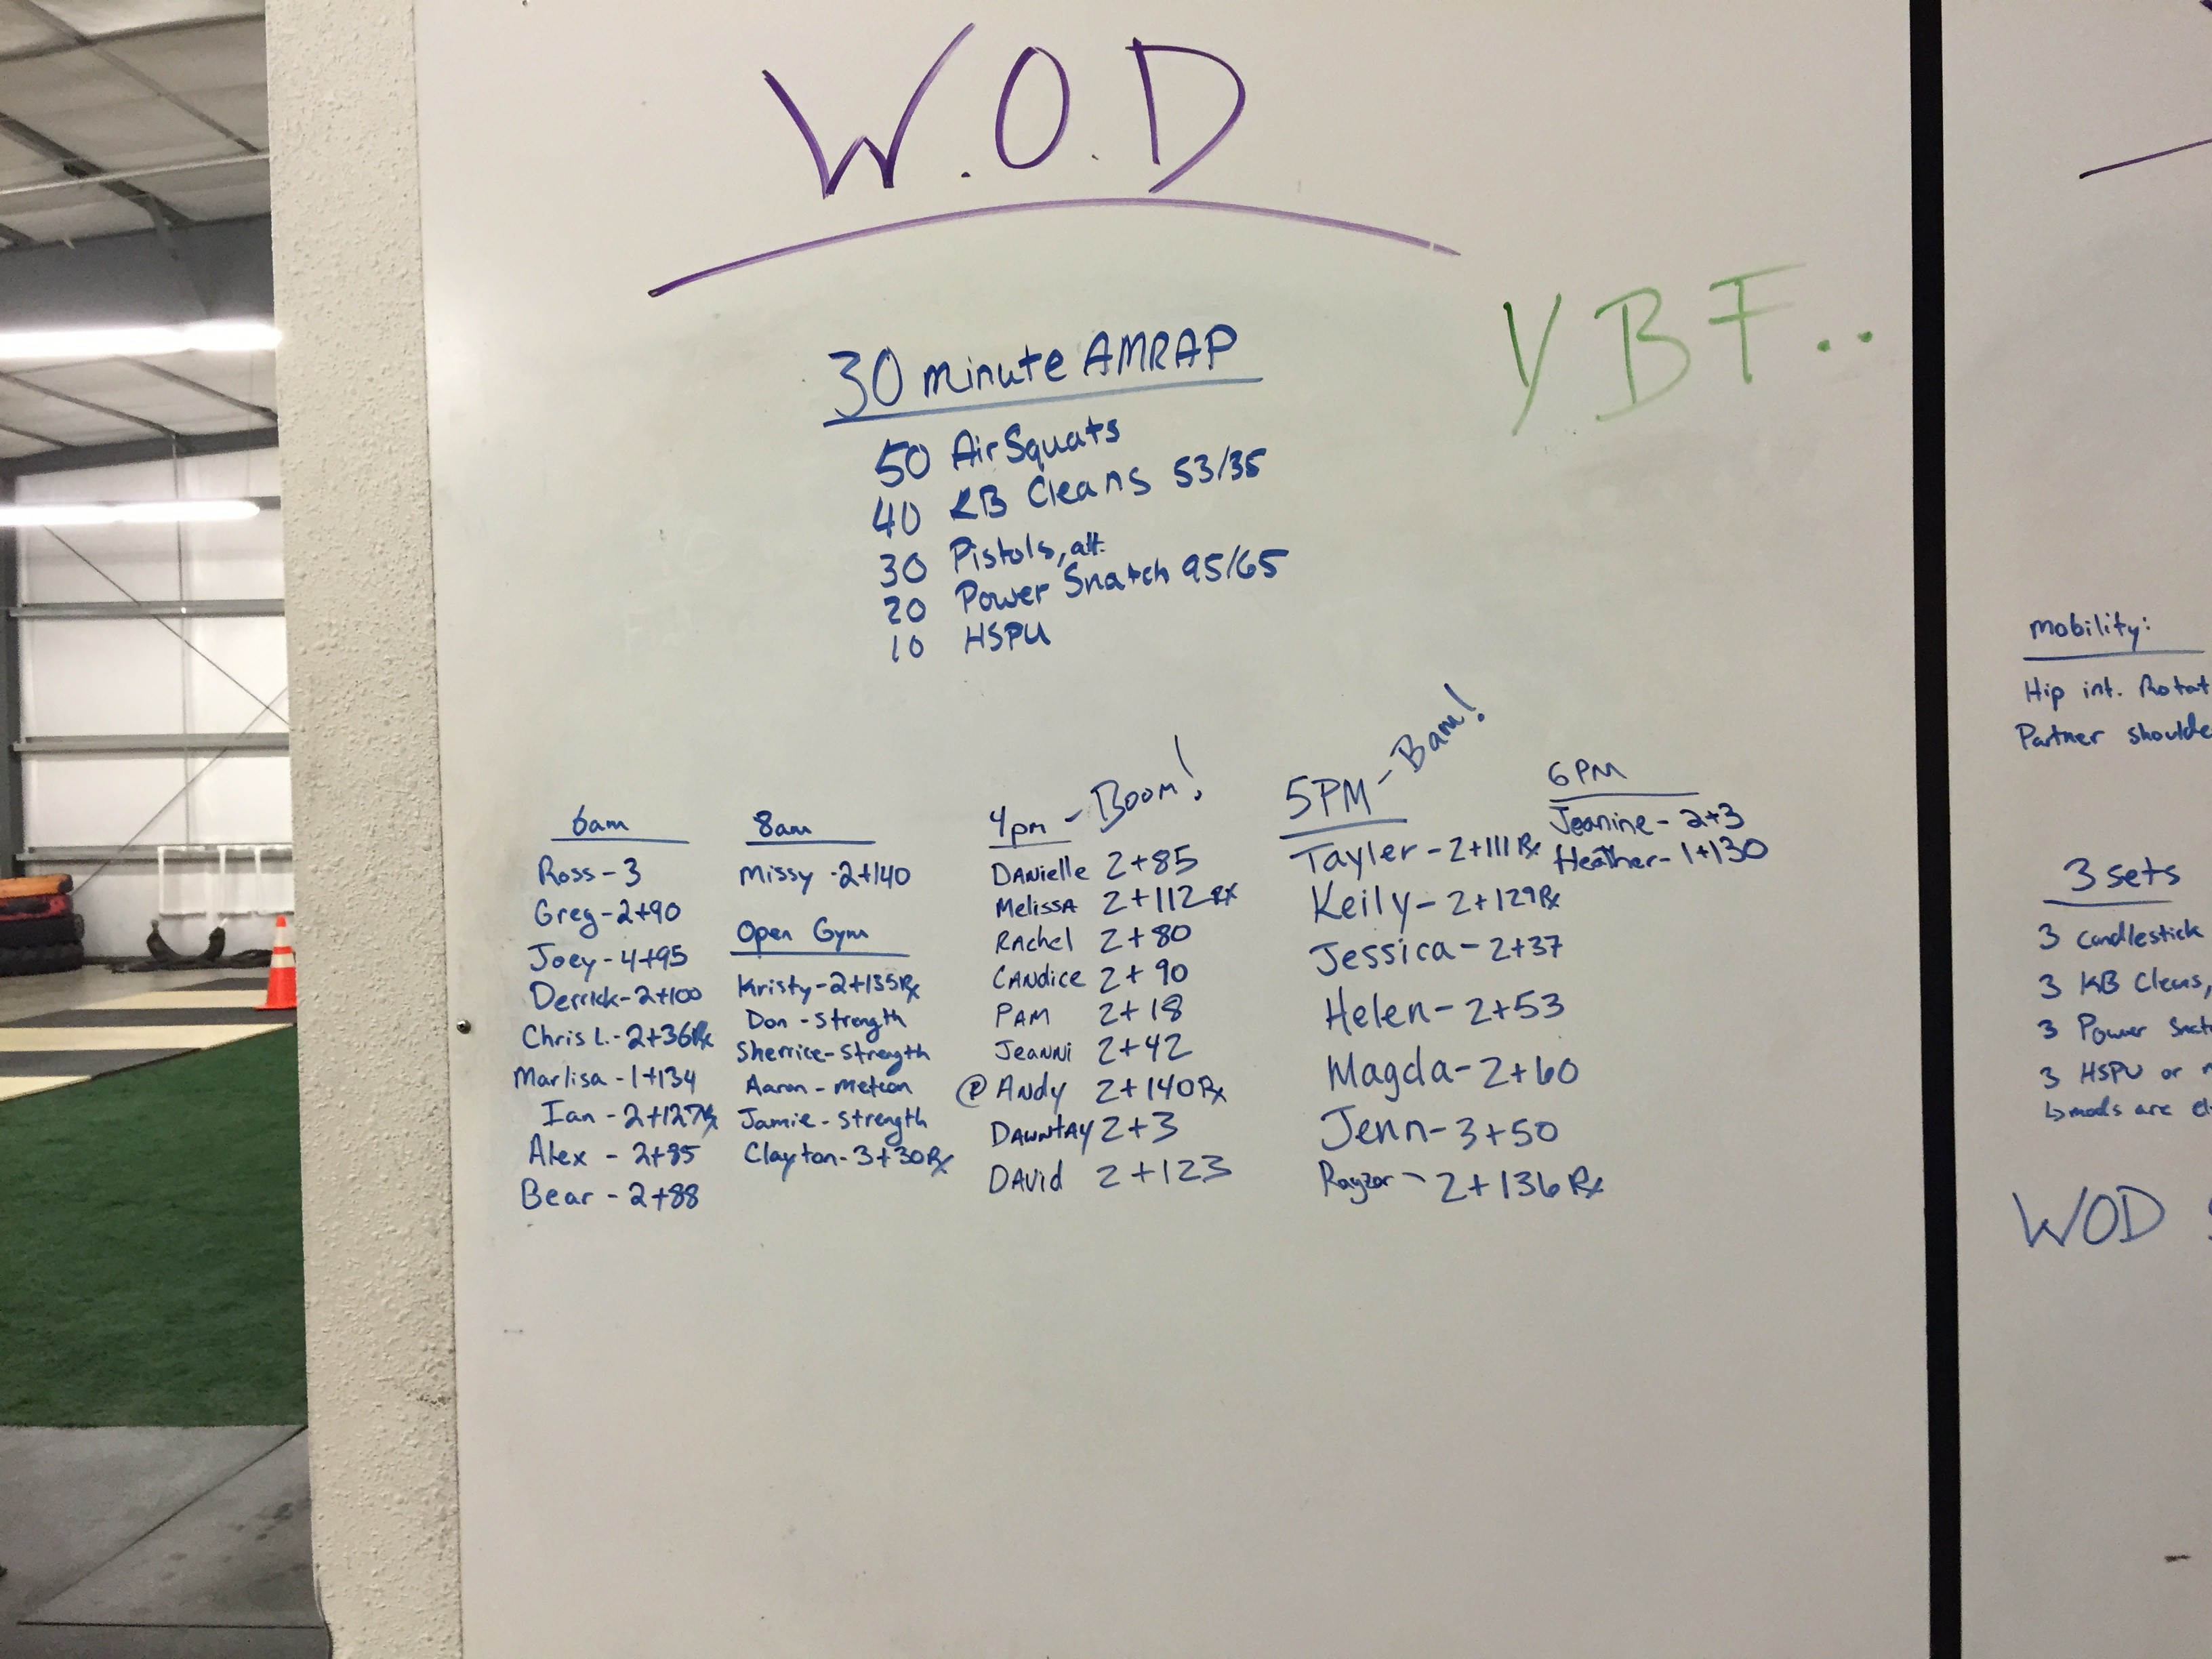 W.O.D
YBF..
30 minute AMRAP
50 Air Squats
40 KB Cleans 53/35
30 Pistols, alt.
20 Power Snatch 95/65
10 HSPU
6am
Ross - 3
Greg - 2+90
Joey - 4+95
Derrick - 2+100
Chris L. - 2+36 Rx
Marlisa - 1+134
Ian - 2+127 Rx
Alex - 2+85
Bear - 2+88
8am
Missy - 2+140
Open Gym
Kristy - 2+135 Rx
Don - Strength
Sherrice - Strength
Aaron - metcon
Jamie - Strength
Clayton - 3+30 Rx
4pm - Boom!
Danielle 2+85
Melissa 2+112 Rx
Rachel 2+80
Candice 2+90
Pam 2+18
Jeanni 2+42
@ Andy 2+140 Rx
Dawntay 2+3
David 2+123
5PM - Bam!
Tayler - 2+111 Rx
Keily - 2+129 Rx
Jessica - 2+37
Helen - 2+53
Magda - 2+60
Jenn - 3+50
Rayzor - 2+136 Rx
6PM
Jeanine - 2+3
Heather - 1+130
Mobility:
Hip int. Rotat
Partner shoulde
3 sets
3 Candlestick
3 KB Cleans,
3 Power Snat
3 HSPU or
↳ mods are
WOD